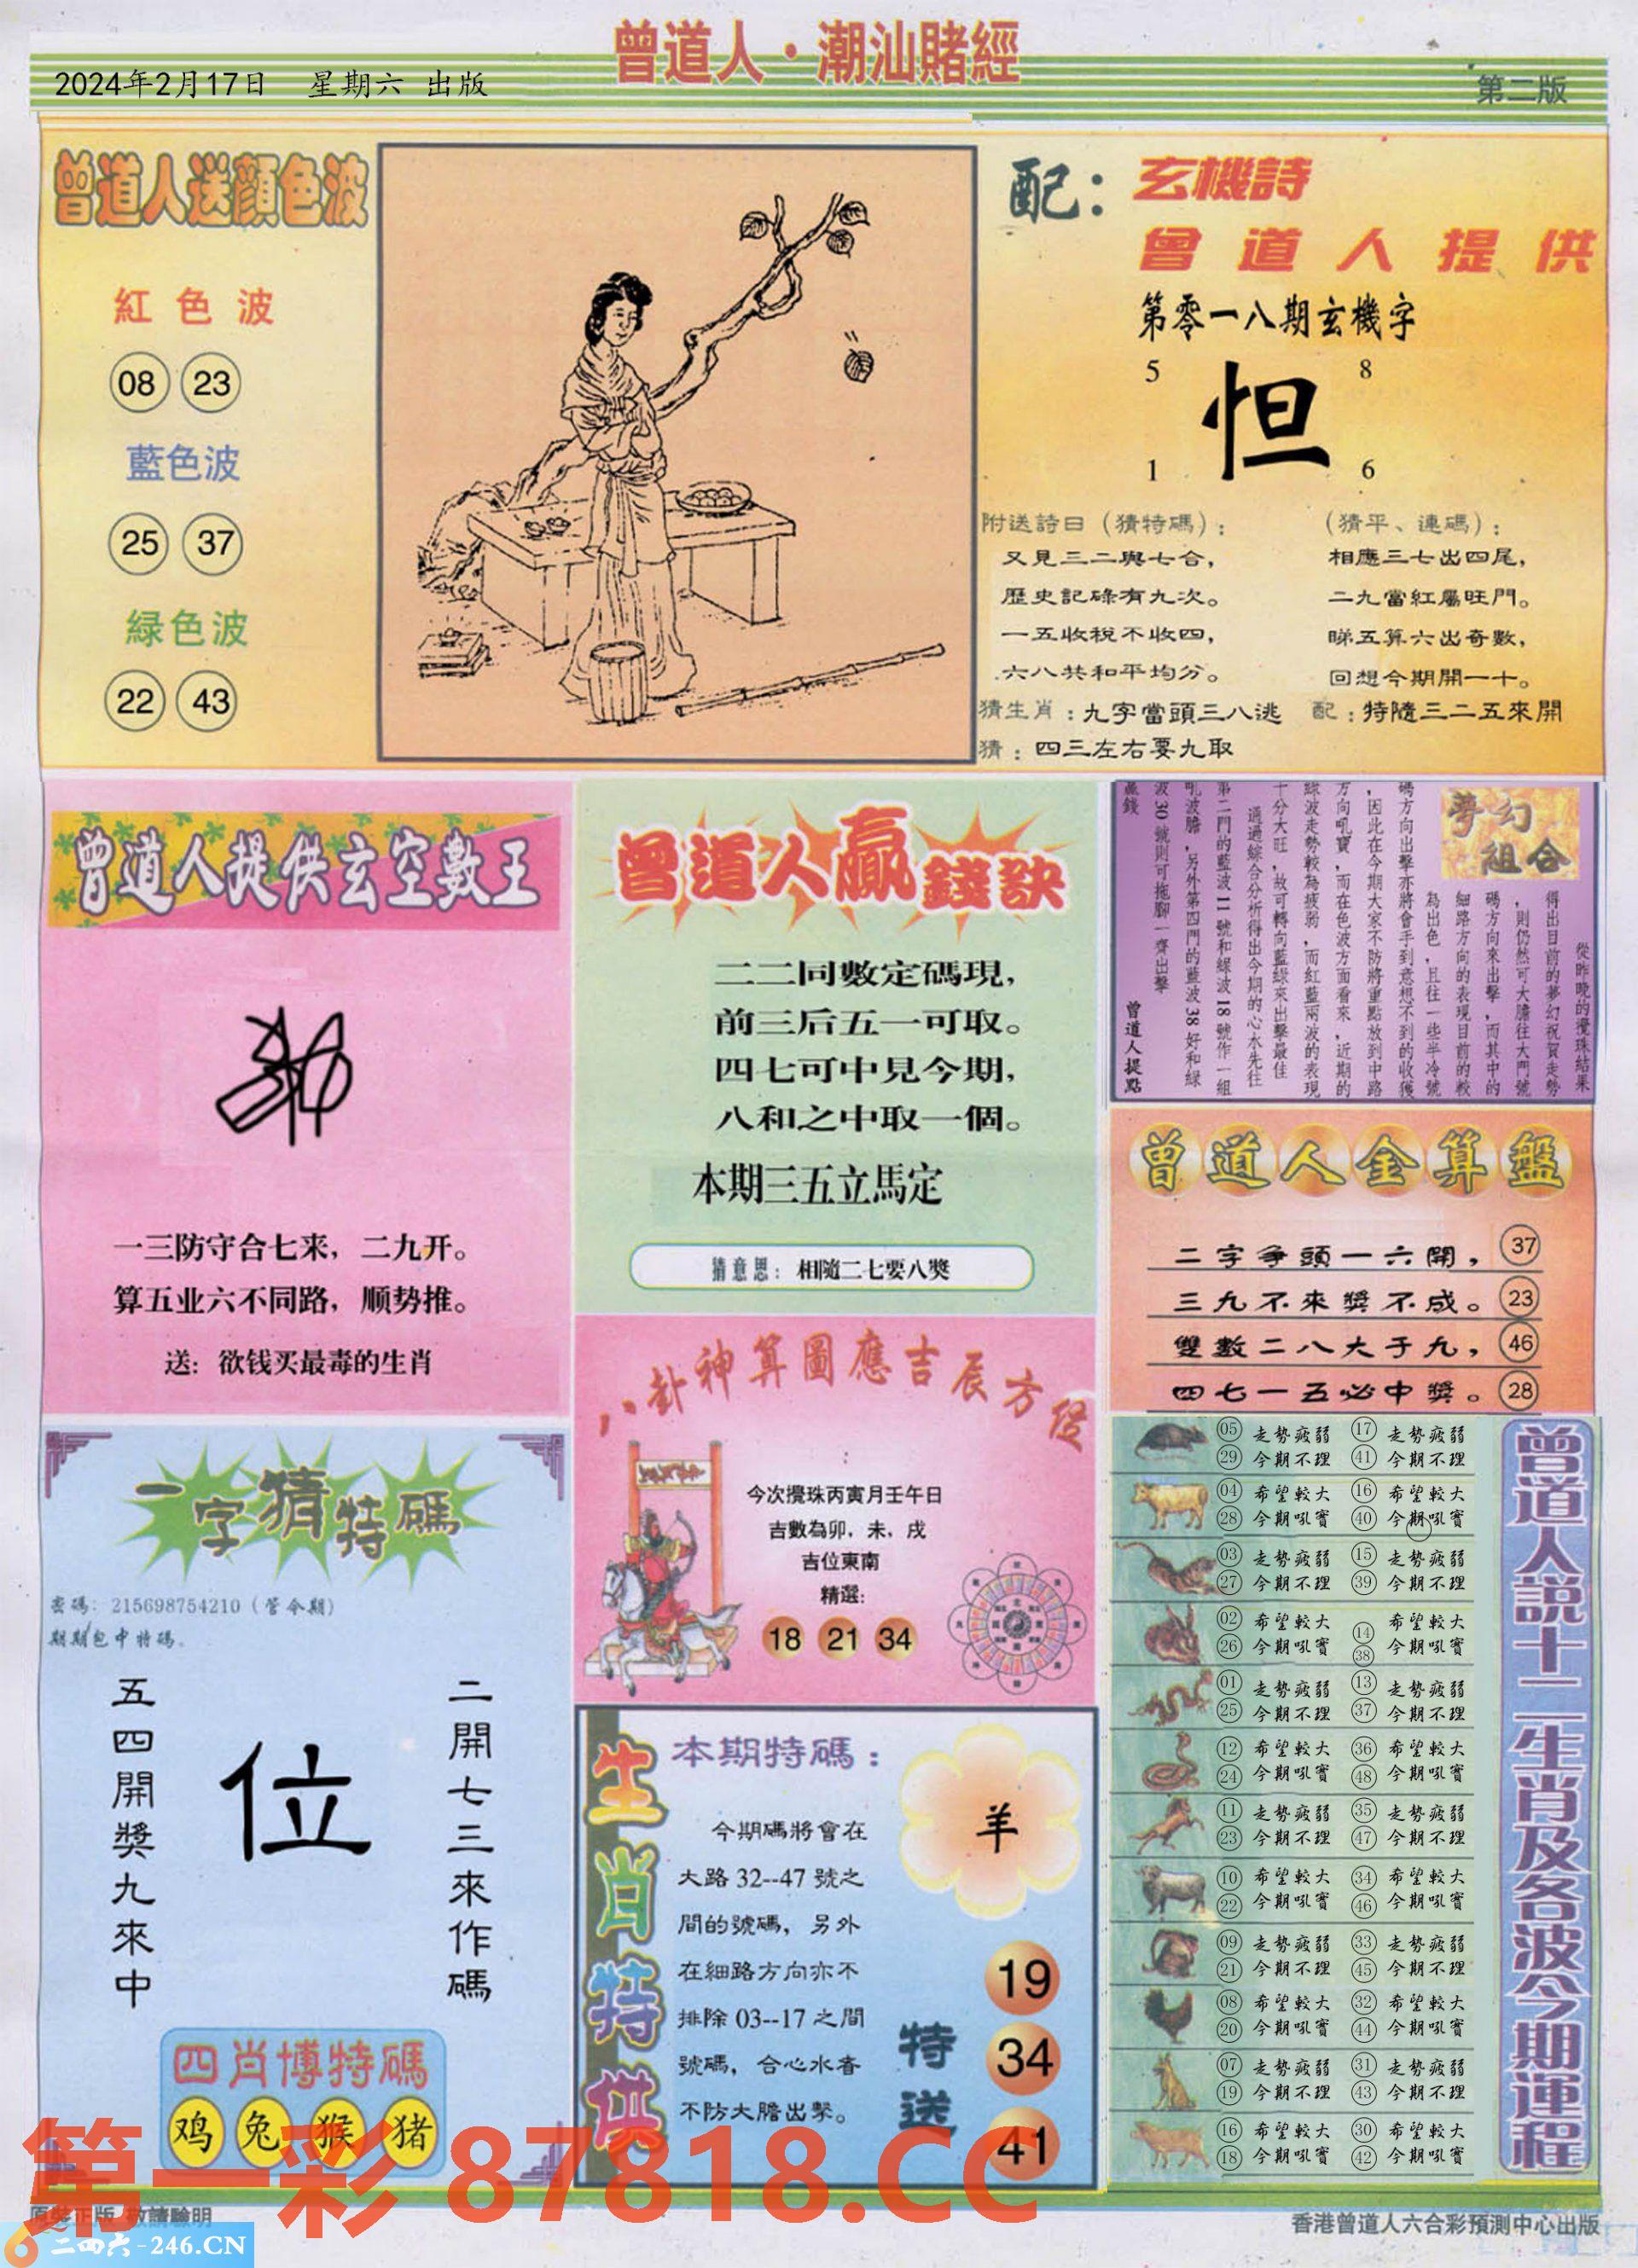 曾道人·潮汕賭經
2024年2月17日 星期六 出版
第二版
曾道人送顔色波
紅色波
08 23
藍色波
25 37
緑色波
22 43
配：玄機詩
曾道人提供
第零一八期玄機字
5 8
怛
1 6
附送詩曰（猜特碼）：
又見三二與七合，
歷史記碌有九次。
一五收稅不收四，
六八共和平均分。
（猜平、連碼）：
相應三七出四尾，
二九當紅屬旺門。
睇五算六出奇數，
回想今期開一十。
猜生肖：九字當頭三八逃
配：特隨三二五來開
猜：四三左右要九取
曾道人提供玄空數王
一三防守合七来，二九开。
算五业六不同路，顺势推。
送：欲钱买最毒的生肖
曾道人贏錢訣
二二同數定碼現，
前三后五一可取。
四七可中見今期，
八和之中取一個。
本期三五立馬定
猜意思：相隨二七要八獎
夢幻
組合
從昨晚的攪珠結果
得出目前的夢幻祝賀走勢
，則仍然可大膽往大門號
碼方向來出擊，而其中的
細路方向的表現目前的較
為出色，且往一些半冷號
碼方向出擊亦將會手到意想不到的收獲
，因此在今期大家不防將重點放到中路
方向吼寶，而在色波方面看來，近期的
綠波走勢較為疲弱，而紅藍兩波的表現
十分大旺，故可轉向藍綠來出擊最佳
通過綜合分析得出今期的心水先往
第二門的藍波11號和綠波18號作一組
吼波膽，另外第四門的藍波38好和綠
波30號則可拖腳一齊出擊
贏錢
曾道人提點
曾道人金算盤
二字爭頭一六開， 37
三九不來獎不成。 23
雙數二八大于九， 46
四七一五必中獎。 28
八卦神算圖應吉辰方位
今次攪珠丙寅月壬午日
吉數為卯，未，戌
吉位東南
精選：
18 21 34
一字猜特碼
密碼：215698754210（管今期）
期期包中特碼。
二開七三來作碼
位
五四開獎九來中
四肖博特碼
鸡 兔 猴 猪
生肖特供
本期特碼：
今期碼將會在
大路32--47號之
間的號碼，另外
在細路方向亦不
排除03--17之間
號碼，合心水者
不防大膽出擊。
羊
特送
19
34
41
曾道人說十二生肖及各波今期運程
05 走勢疲弱 17 走勢疲弱
29 今期不理 41 今期不理
04 希望較大 16 希望較大
28 今期吼寶 40 今期吼寶
03 走勢疲弱 15 走勢疲弱
27 今期不理 39 今期不理
02 希望較大 14 希望較大
26 今期吼寶 38 今期吼寶
01 走勢疲弱 13 走勢疲弱
25 今期不理 37 今期不理
12 希望較大 36 希望較大
24 今期吼寶 48 今期吼寶
11 走勢疲弱 35 走勢疲弱
23 今期不理 47 今期不理
10 希望較大 34 希望較大
22 今期吼寶 46 今期吼寶
09 走勢疲弱 33 走勢疲弱
21 今期不理 45 今期不理
08 希望較大 32 希望較大
20 今期吼寶 44 今期吼寶
07 走勢疲弱 31 走勢疲弱
19 今期不理 43 今期不理
16 希望較大 30 希望較大
18 今期吼寶 42 今期吼寶
第一彩 87818.CC
原裝正版 敬請驗明
二四六-246.CN
香港曾道人六合彩預測中心出版